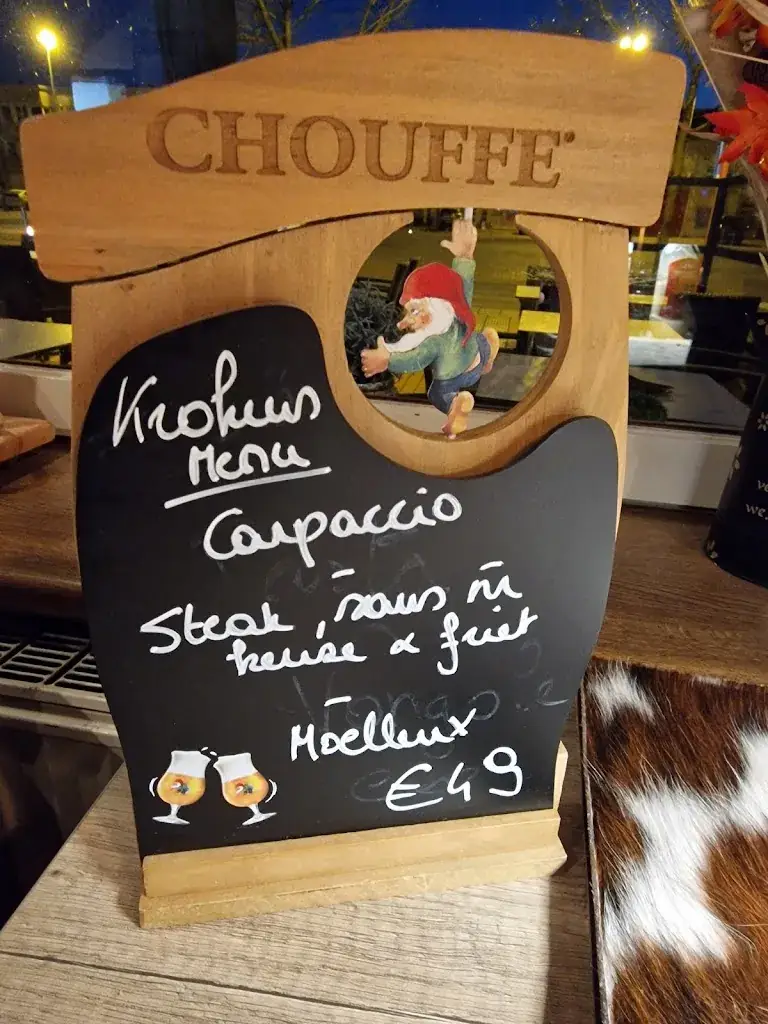 CHOUFFE®
Krokus
Menu
Carpaccio
Steak, saus nr
keuse & friet
Moelleux
€49